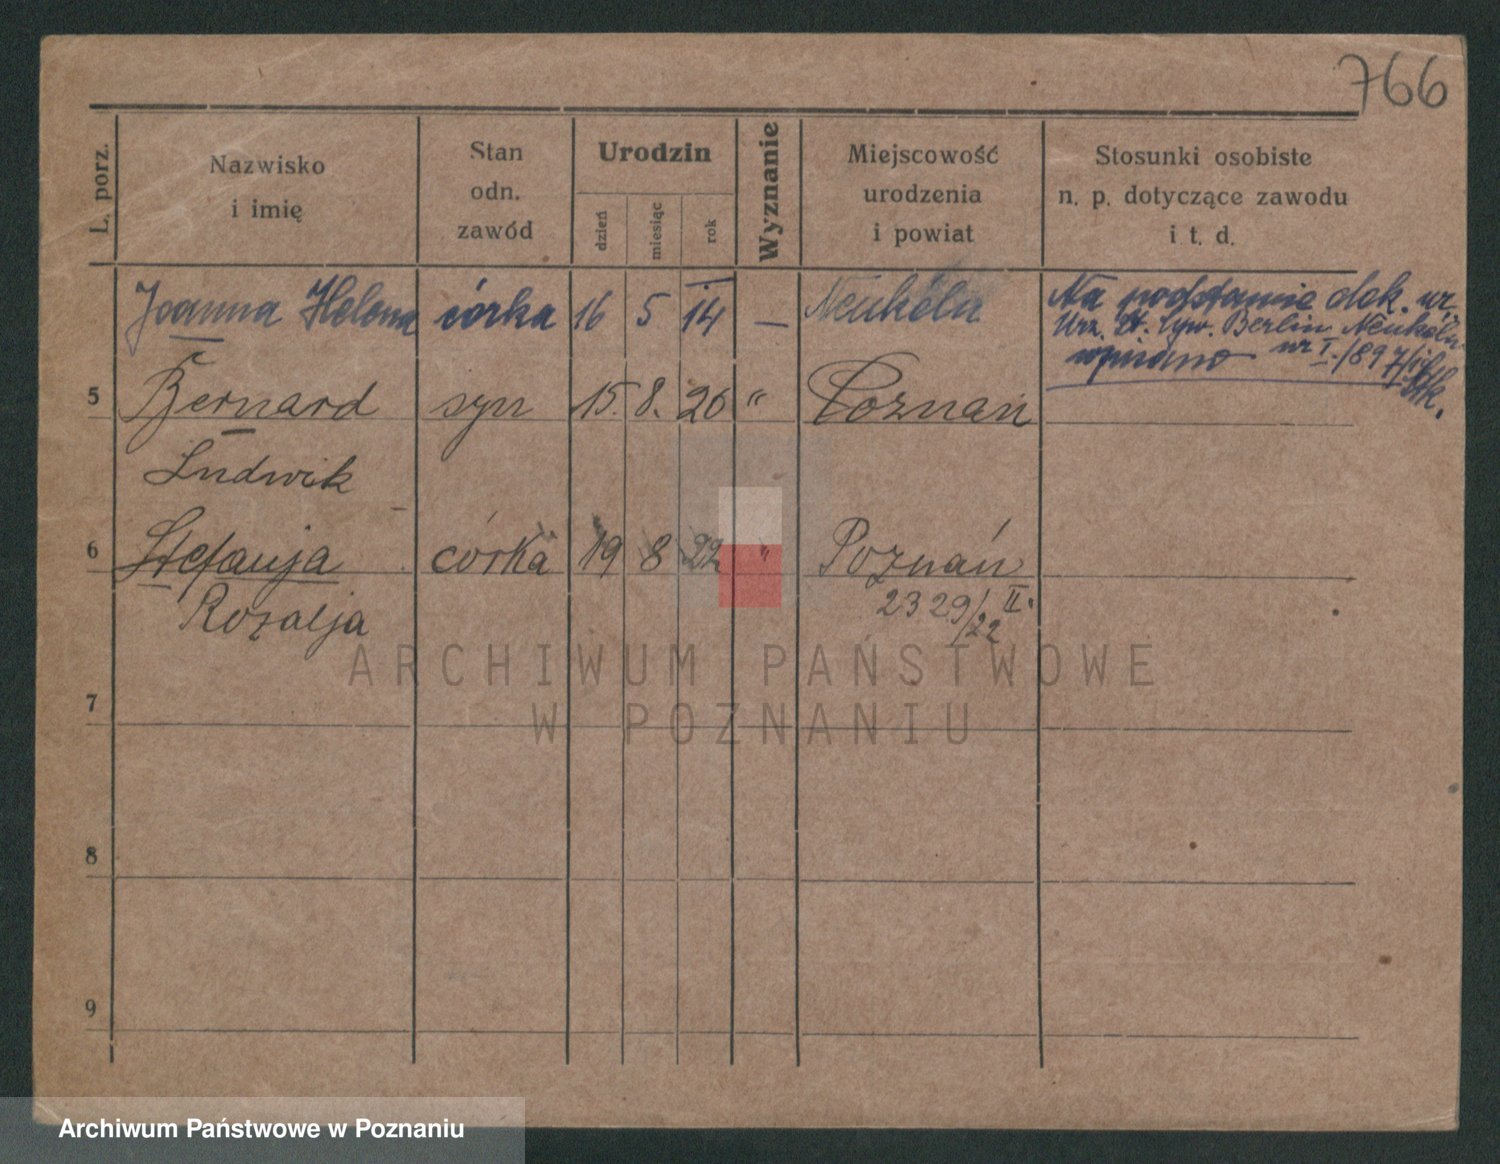 766
L. porz.
Nazwisko
i imię
Stan
odn.
zawód
Urodzin
dzień
miesiąc
rok
Wyznanie
Miejscowość
urodzenia
i powiat
Stosunki osobiste
n. p. dotyczące zawodu
i t. d.
Joanna Helena córka 16 5 14 — Neukéln
Na podstawie dok. ur.
Urz. St. Cyw. Berlin Neukéln
wpisano nr I./897/14
5 Bernard syn 15. 8. 26 " Poznań
Ludwik
6 Stefanja córka 19 8 22 " Poznań
Rozalja 2329/22 II.
7
8
9
ARCHIWUM PAŃSTWOWE
W POZNANIU
Archiwum Państwowe w Poznaniu